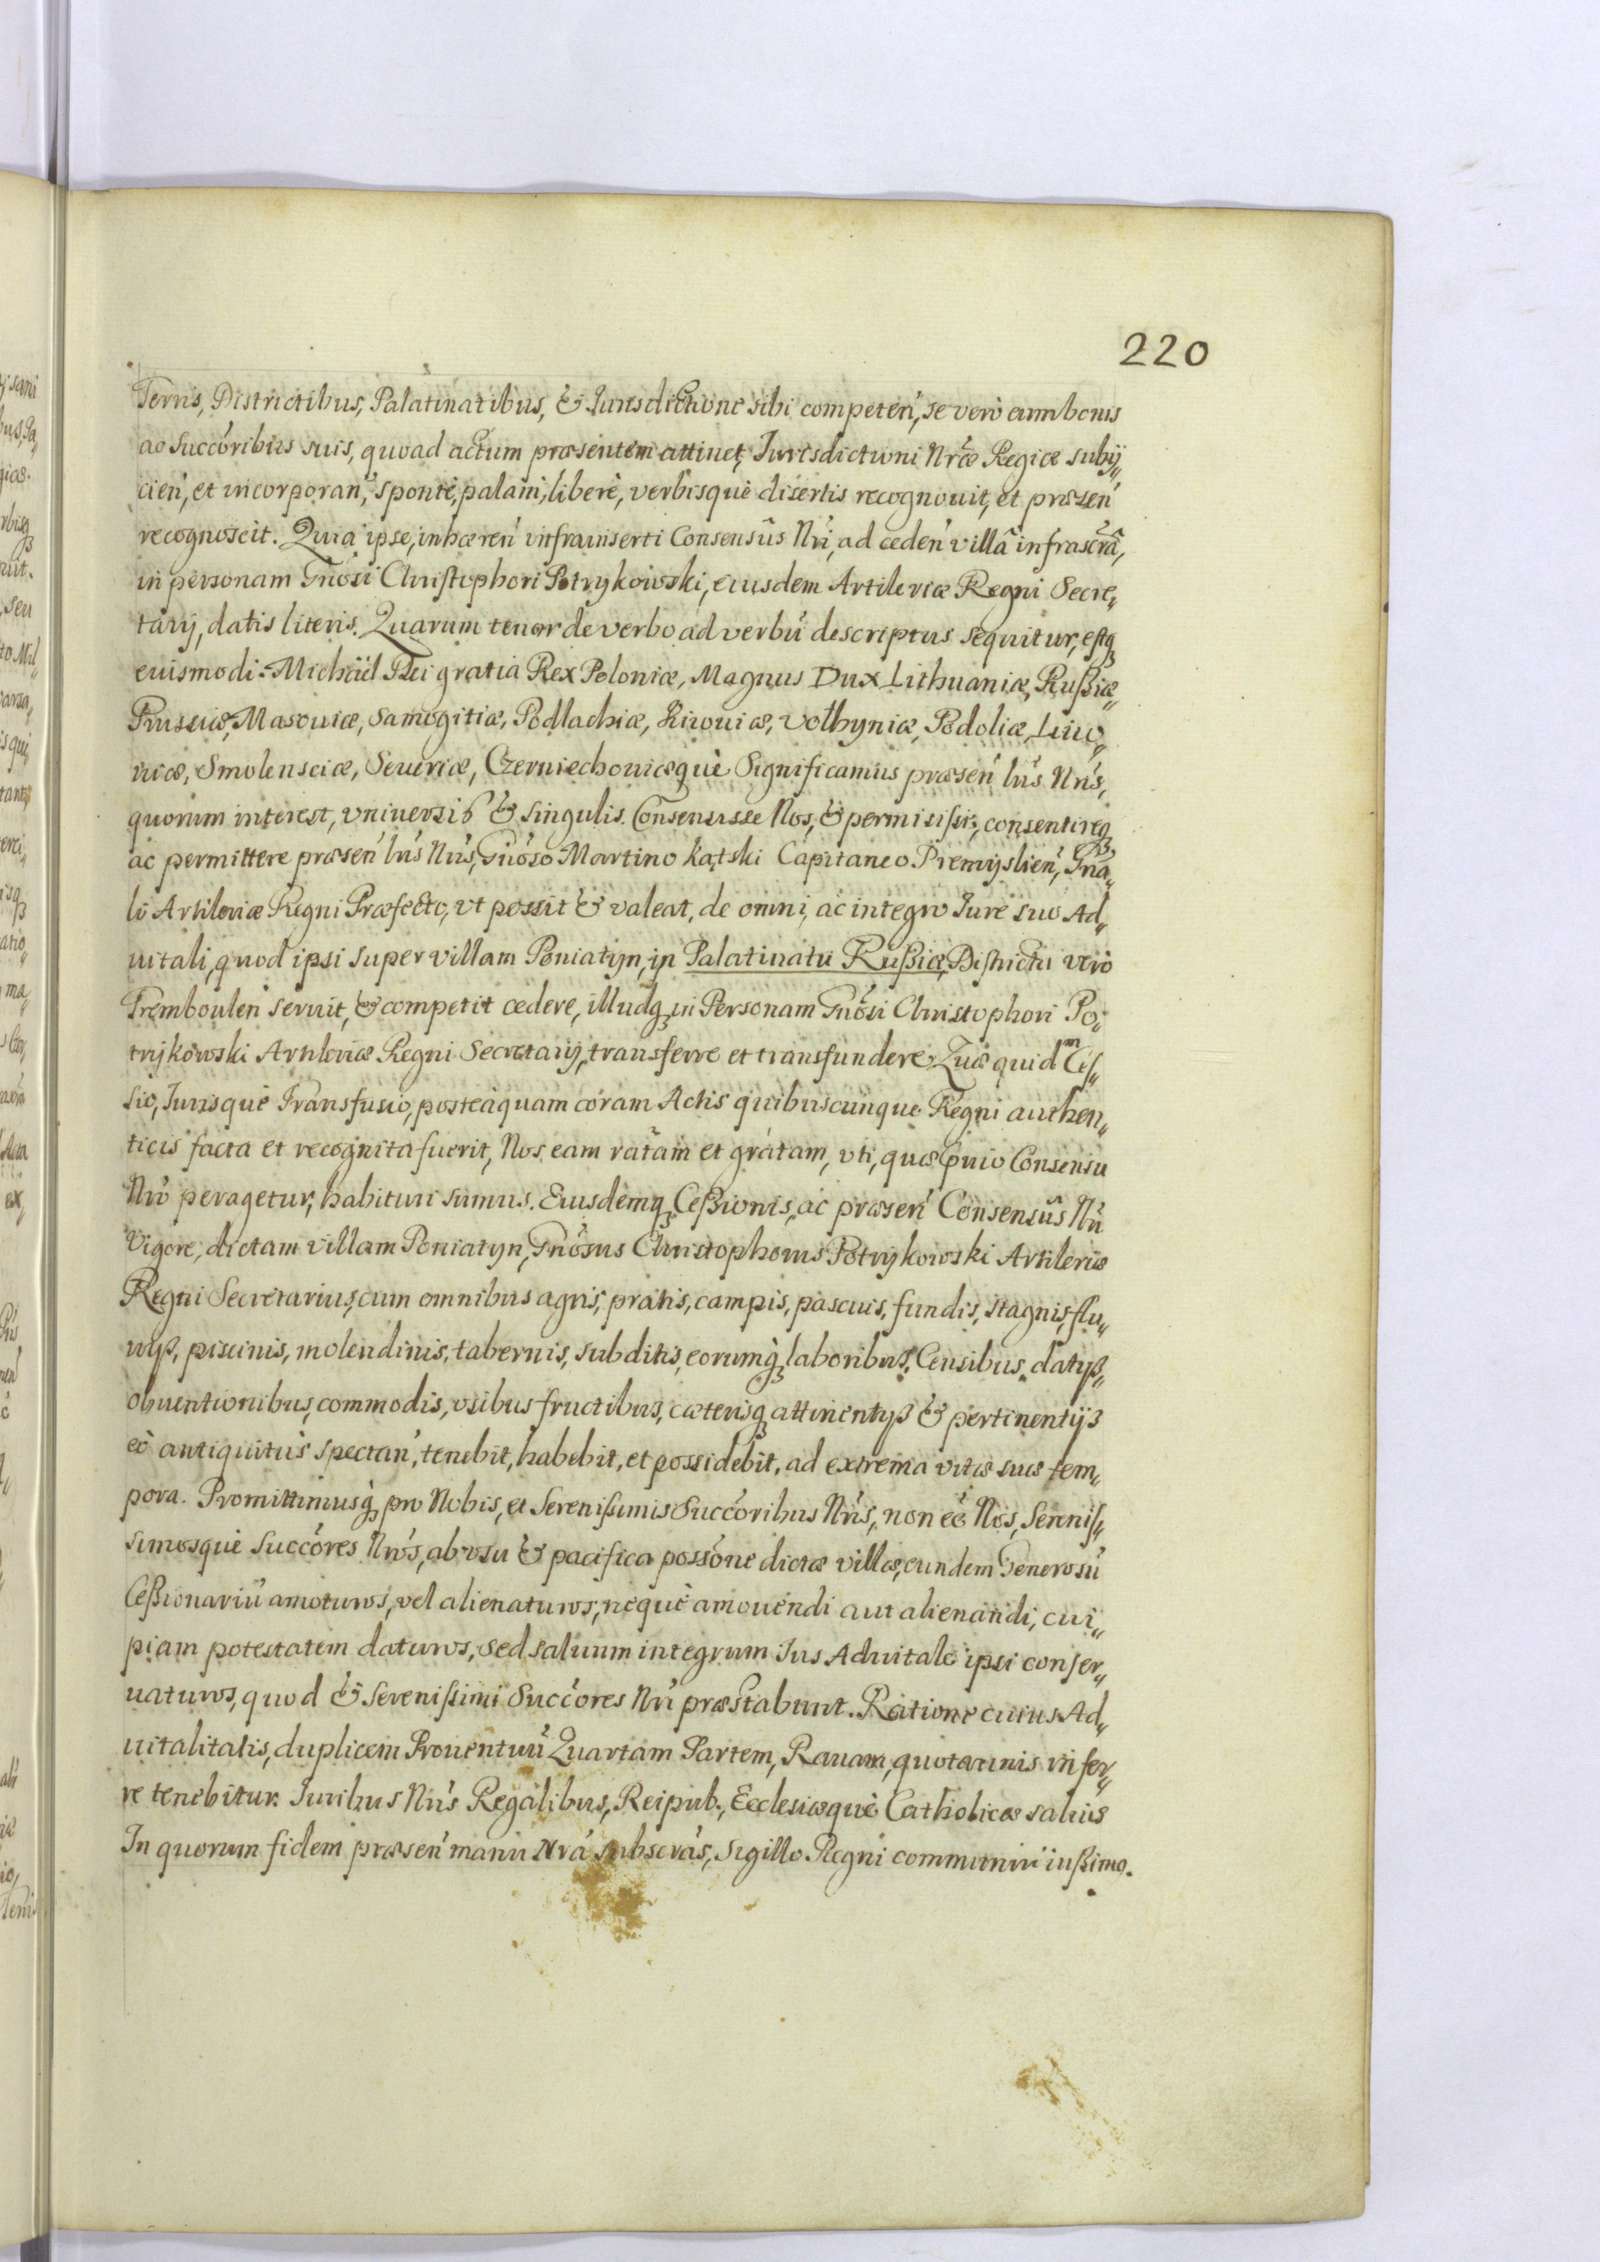 220
Terris, Districtibus, Palatinatibus, & Iurisdictione sibi competeń, se verò cum bonis
ac Succoribus suis, quoad actum præsentem attinet, Iurisdictioni Nræ Regiæ subij„
cień, et incorporań, spontè, palam, liberè, verbisquè disertis recognouit, et præseń
recognoscit. Quia ipse, inhæreń infrainserti Consensûs Nri, ad cedeń villã infrascrã,
in personam Gnosi Christophori Potrykowski, eiusdem Artileriæ Regni Secre„
tarij, datis literis. Quarum tenor de verbo ad verbũ descriptus sequitur, estq
euismodi: Michäel Dei gratia Rex Poloniæ, Magnus Dux Lithuaniæ, Rußiæ„
Prussiæ, Masouiæ, Samogitiæ, Podlachiæ, Kiiouiæ, Volhyniæ, Podoliæ, Liuo„
niæ, Smolensciæ, Seueriæ, Czerniechouiæquè Significamus præseń lrís Nrís,
quorum interest, vniuersis & singulis. Consensisse Nos, & permisisse, consentireq
ac permittere præseń lrís Nrís, Gnoso Martino Kątski Capitaneo Premyslień, Gna„
li Artileriæ Regni Præfecto, vt possit & valeat, de omni, ac integro Iure suo Ad„
uitali, quod ipsi super villam Poniatyn, in Palatinatu Rußiæ, Districtu verò
Trembouleń seruit, & competit cedere, illudq in Personam Gnosi Christophori Po„
trykowski Artileriæ Regni Secretarij, transferre et transfundere. Quæ quidm Ces„
sio, Iurisquè Transfusio, posteaquam coram Actis quibuscunque Regni authen„
ticis facta et recognita fuerit, Nos eam ratam et gratam, vti, quæ præuio Consensu
Nro peragetur, habituri sumus. Eiusdemq Ceßionis, ac præseń Consensûs Nri
Vigore, dictam villam Poniatyn, Gnosus Christophorus Potrykowski Artileriæ
Regni Secretarius, cum omnibus agris, pratis, campis, pascuis, fundis, stagnis, flu„
uijs, piscinis, molendinis, tabernis, subditis, eorumq laboribus, Censibus, datijs„
obuentionibus, commodis, vsibus fructibus, cæterisq attinentijs & pertinentijs
eò antiquitùs spectań, tenebit, habebit, et possidebit, ad extrema vitæ suæ tem„
pora. Promittimusq pro Nobis, et Serenissimis Succoribus Nrís, non eē Nos, Serenis„
simosquè Succores Nros, ab vsu & pacifica possone dictæ villæ, eundem Generosũ
Ceßionariũ amoturos, vel alienaturos, nequè amouendi aut alienandi, cui„
piam potestatem daturos, sed saluum integrum Ius Aduitale ipsi conser„
uaturos, quod & Serenissimi Succores Nri præstabunt. Ratione cuius Ad„
uitalitatis, duplicem Prouentuũ Quartam Partem, Rauam, quotannis infer„
re tenebitur. Iuribus Nrís Regalibus, Reipub., Ecclesiæquè Catholicæ saluis
In quorum fidem præseń manu Nrá subscrás, sigillo Regni communiri iußimo.